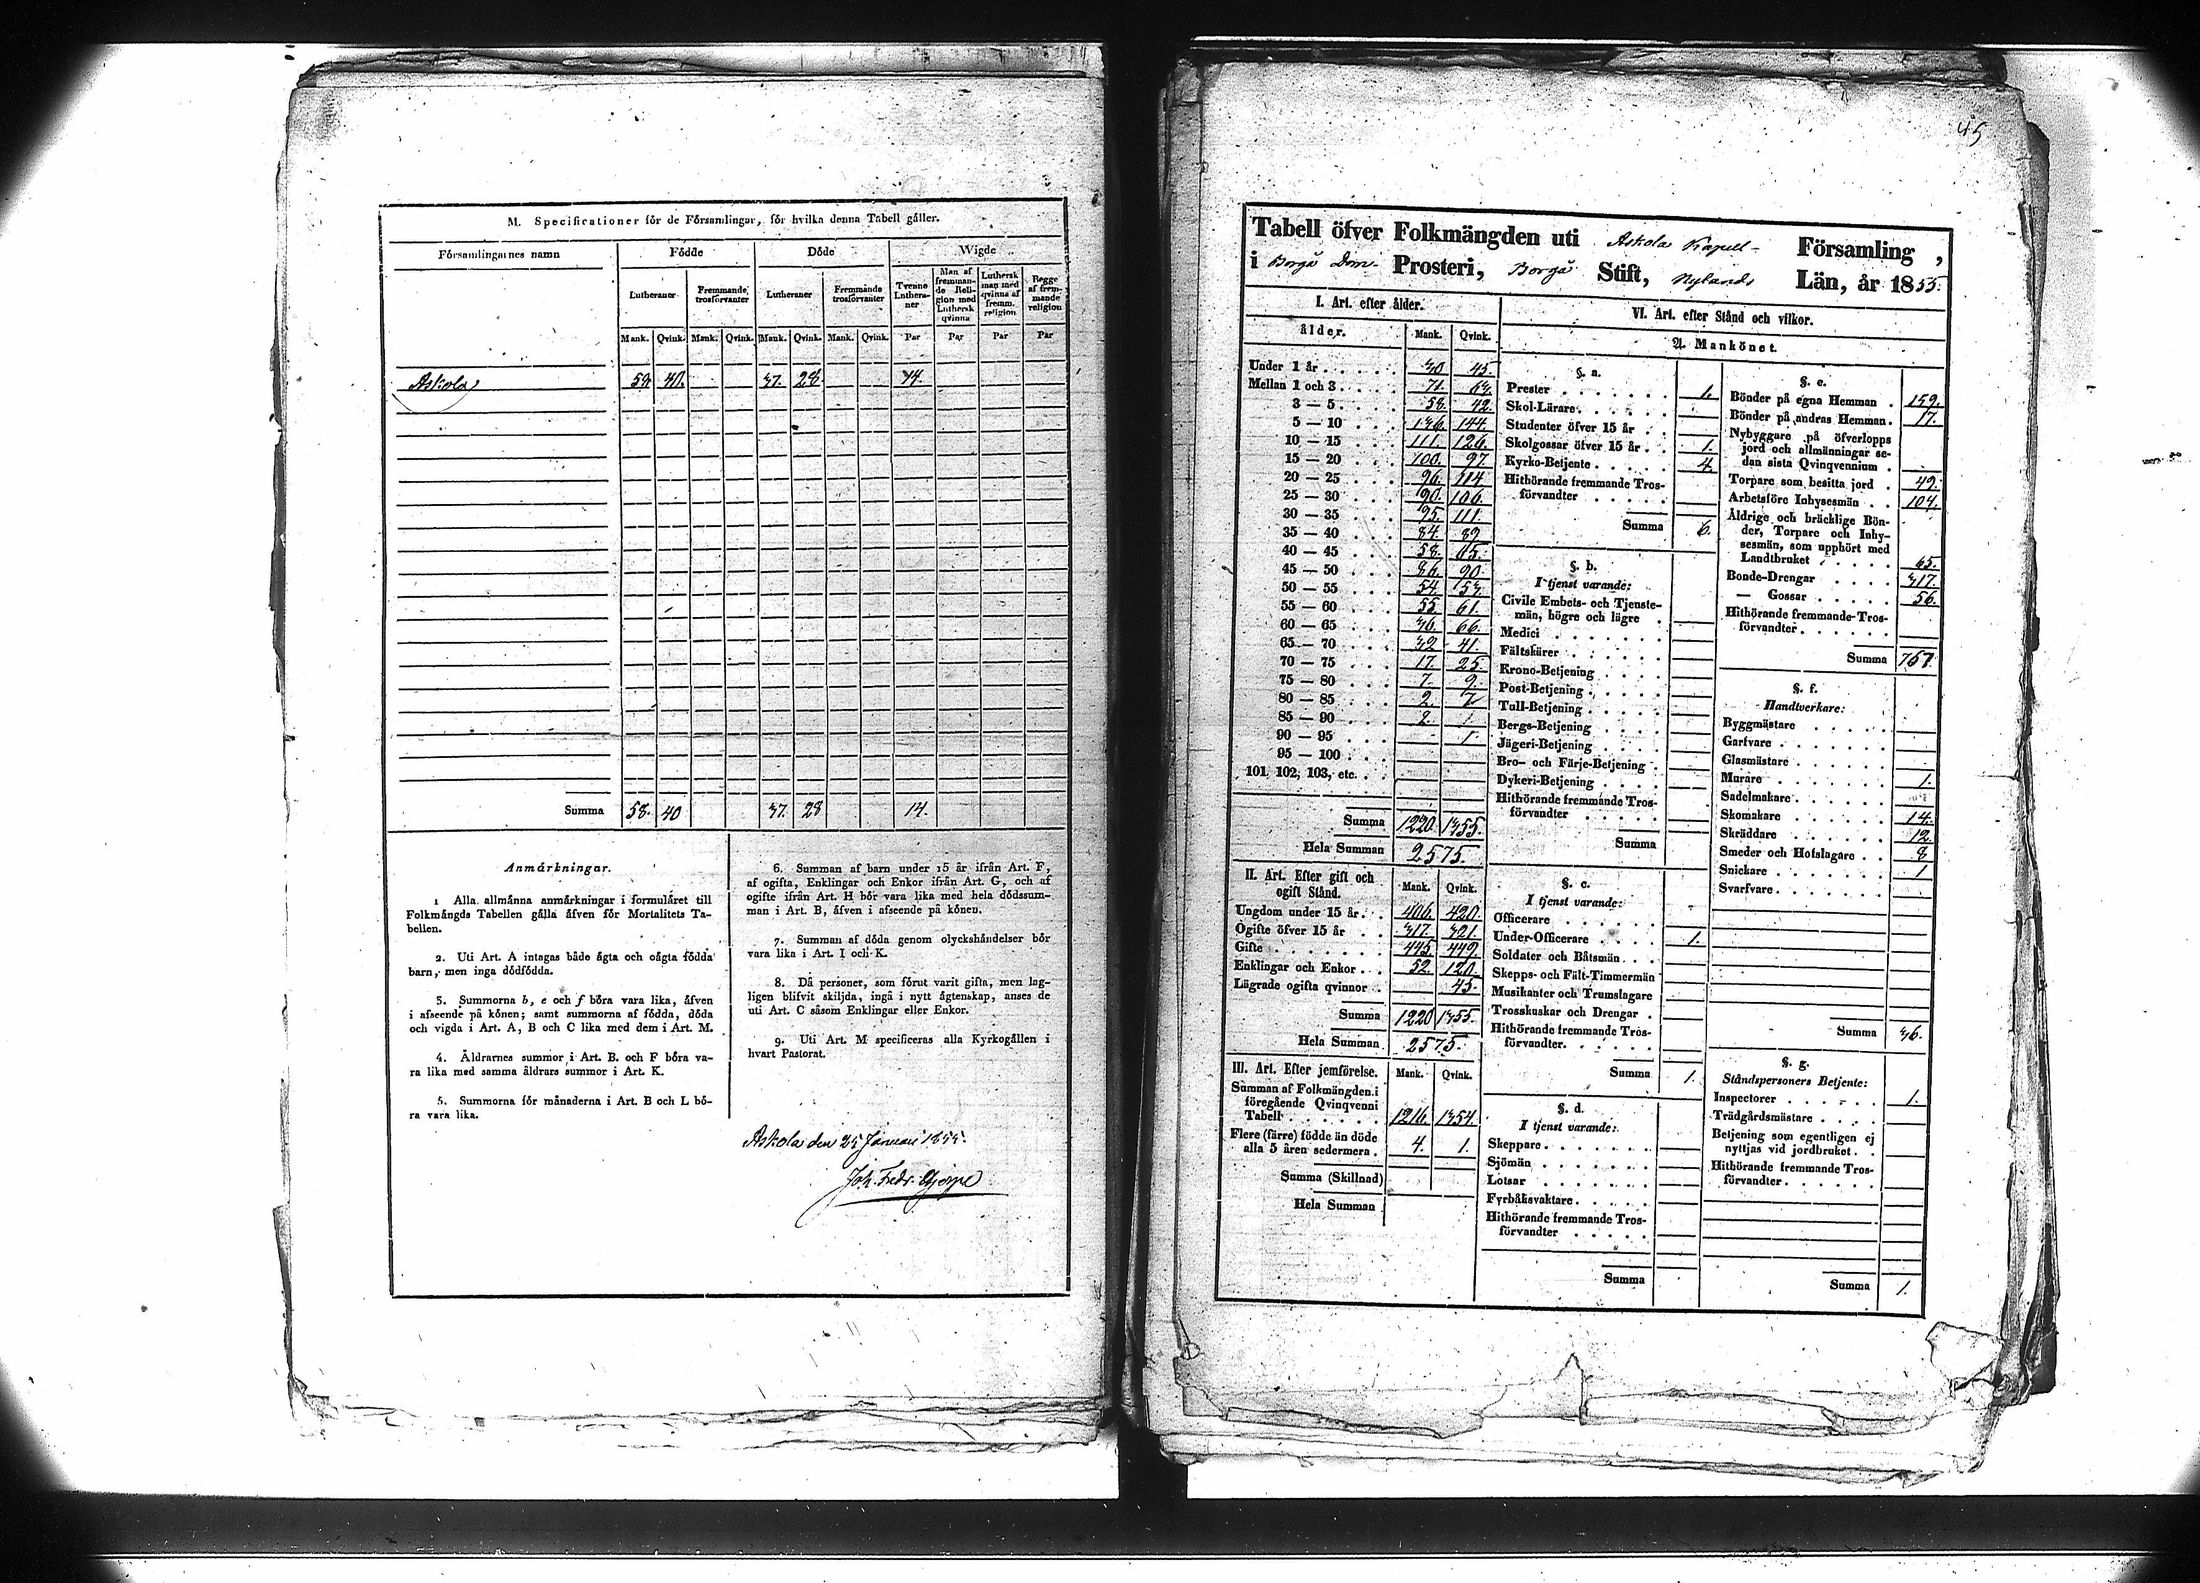 M. Specificationer för de Församlingar, för hvilka denna Tabell gäller.
Församlingarnes namn
Födde
Döde
Wigde
Lutheraner
Fremmande trosförvanter
Lutheraner
Fremmande trosförvanter
Tvenne Lutheraner
Man af fremmande Religion med Luthersk qvinna
Luthersk man med qvinna af fremm. religion
Begge af fremmande religion
Mank. Qvink. Mank. Qvink. Mank. Qvink. Mank. Qvink. Par Par Par Par
Askola 58. 40. 37. 28 14.
Summa 58. 40 37. 28 14.
Anmärkningar.
1 Alla allmänna anmärkningar i formuläret till
Folkmängds Tabellen gälla äfven för Mortalitets Ta-
bellen.
2. Uti Art. A intagas både ägta och oägta födda
barn, men inga dödfödda.
3. Summorna b, e och f böra vara lika, äfven
i afseende på könen; samt summorna af födda, döda
och vigda i Art. A, B och C lika med dem i Art. M.
4. Äldrarnes summor i Art. B. och F böra va-
ra lika med samma äldrars summor i Art. K.
5. Summorna för månaderna i Art. B och L bö-
ra vara lika.
6. Summan af barn under 15 år ifrån Art. F,
af ogifta, Enklingar och Enkor ifrån Art. G, och af
ogifte ifrån Art. H bör vara lika med hela dödssum-
man i Art. B, äfven i afseende på könen.
7. Summan af döda genom olyckshändelser bör
vara lika i Art. I och K.
8. Då personer, som förut varit gifta, men lag-
ligen blifvit skiljda, ingå i nytt ägtenskap, anses de
uti Art. C såsom Enklingar eller Enkor.
9. Uti Art. M specificeras alla Kyrkogällen i
hvart Pastorat.
Askola den 25 Januari 1855.
Joh. Fedr.
45
Tabell öfver Folkmängden uti Askola Kapell- Församling,
i Borgå Dom- Prosteri, Borgå Stift, Nylands Län, år 1855.
I. Art. efter ålder.
ålder. Mank. Qvink.
Under 1 år 30 45.
Mellan 1 och 3 71. 63.
3 — 5 58. 42.
5 — 10 136. 144.
10 — 15 111. 126.
15 — 20 100. 97.
20 — 25 96. 114
25 — 30 90. 106.
30 — 35 95. 111.
35 — 40 84. 89
40 — 45 58.
45 — 50 86. 90.
50 — 55 54. 53.
55 — 60 55. 61.
60 — 65 36. 66.
65 — 70 32 41.
70 — 75 17. 25.
75 — 80 7. 9.
80 — 85 2. 7
85 — 90 2. 1.
90 — 95 1.
95 — 100
101, 102, 103, etc.
Summa 1220. 1355.
Hela Summan 2575.
II. Art. Efter gift och
ogift Stånd. Mank. Qvink.
Ungdom under 15 år 406. 420.
Ogifte öfver 15 år 317. 321.
Gifte 445. 449.
Enklingar och Enkor 52. 120.
Lägrade ogifta qvinnor 45.
Summa 1220 1355.
Hela Summan 2575.
III. Art. Efter jemförelse. Mank. Qvink.
Summan af Folkmängden i
föregående Qvinqvenni
Tabell 1216. 1354.
Flere (färre) födde än döde
alla 5 åren sedermera 4. 1.
Summa (Skillnad)
Hela Summan
VI. Art. efter Stånd och vilkor.
A. Mankönet.
§. a.
Prester 1.
Skol-Lärare
Studenter öfver 15 år
Skolgossar öfver 15 år 1.
Kyrko-Betjente 4.
Hithörande fremmande Tros-
förvandter
Summa 6.
§. b.
I tjenst varande:
Civile Embets- och Tjenste-
män, högre och lägre
Medici
Fältskärer
Krono-Betjening
Post-Betjening
Tull-Betjening
Bergs-Betjening
Jägeri-Betjening
Bro- och Färje-Betjening
Dykeri-Betjening
Hithörande fremmande Tros-
förvandter
Summa
§. c.
I tjenst varande:
Officerare
Under-Officerare 1.
Soldater och Båtsmän
Skepps- och Fält-Timmermän
Musikanter och Trumslagare
Trosskuskar och Drengar
Hithörande fremmande Tros-
förvandter.
Summa 1.
§. d.
I tjenst varande:
Skeppare
Sjömän
Lotsar
Fyrbåksvaktare
Hithörande fremmande Tros-
förvandter
Summa
§. e.
Bönder på egna Hemman 159.
Bönder på andras Hemman 17.
Nybyggare på öfverlopps
jord och allmänningar se-
dan sista Qvinqvennium
Torpare som besitta jord 49.
Arbetsföre Inhysesmän 104.
Åldrige och bräcklige Bön-
der, Torpare och Inhy-
sesmän, som upphört med
Landtbruket 65.
Bonde-Drengar 317.
— Gossar 56.
Hithörande fremmande Tros-
förvandter
Summa 767
§. f.
Handtverkare:
Byggmästare
Garfvare
Glasmästare
Murare 1.
Sadelmakare
Skomakare 14.
Skräddare 12.
Smeder och Hofslagare 8
Snickare 1
Svarfvare
Summa 36.
§. g.
Ståndspersoners Betjente:
Inspectorer 1.
Trädgårdsmästare
Betjening som egentligen ej
nyttjas vid jordbruket
Hithörande fremmande Tros-
förvandter
Summa 1.